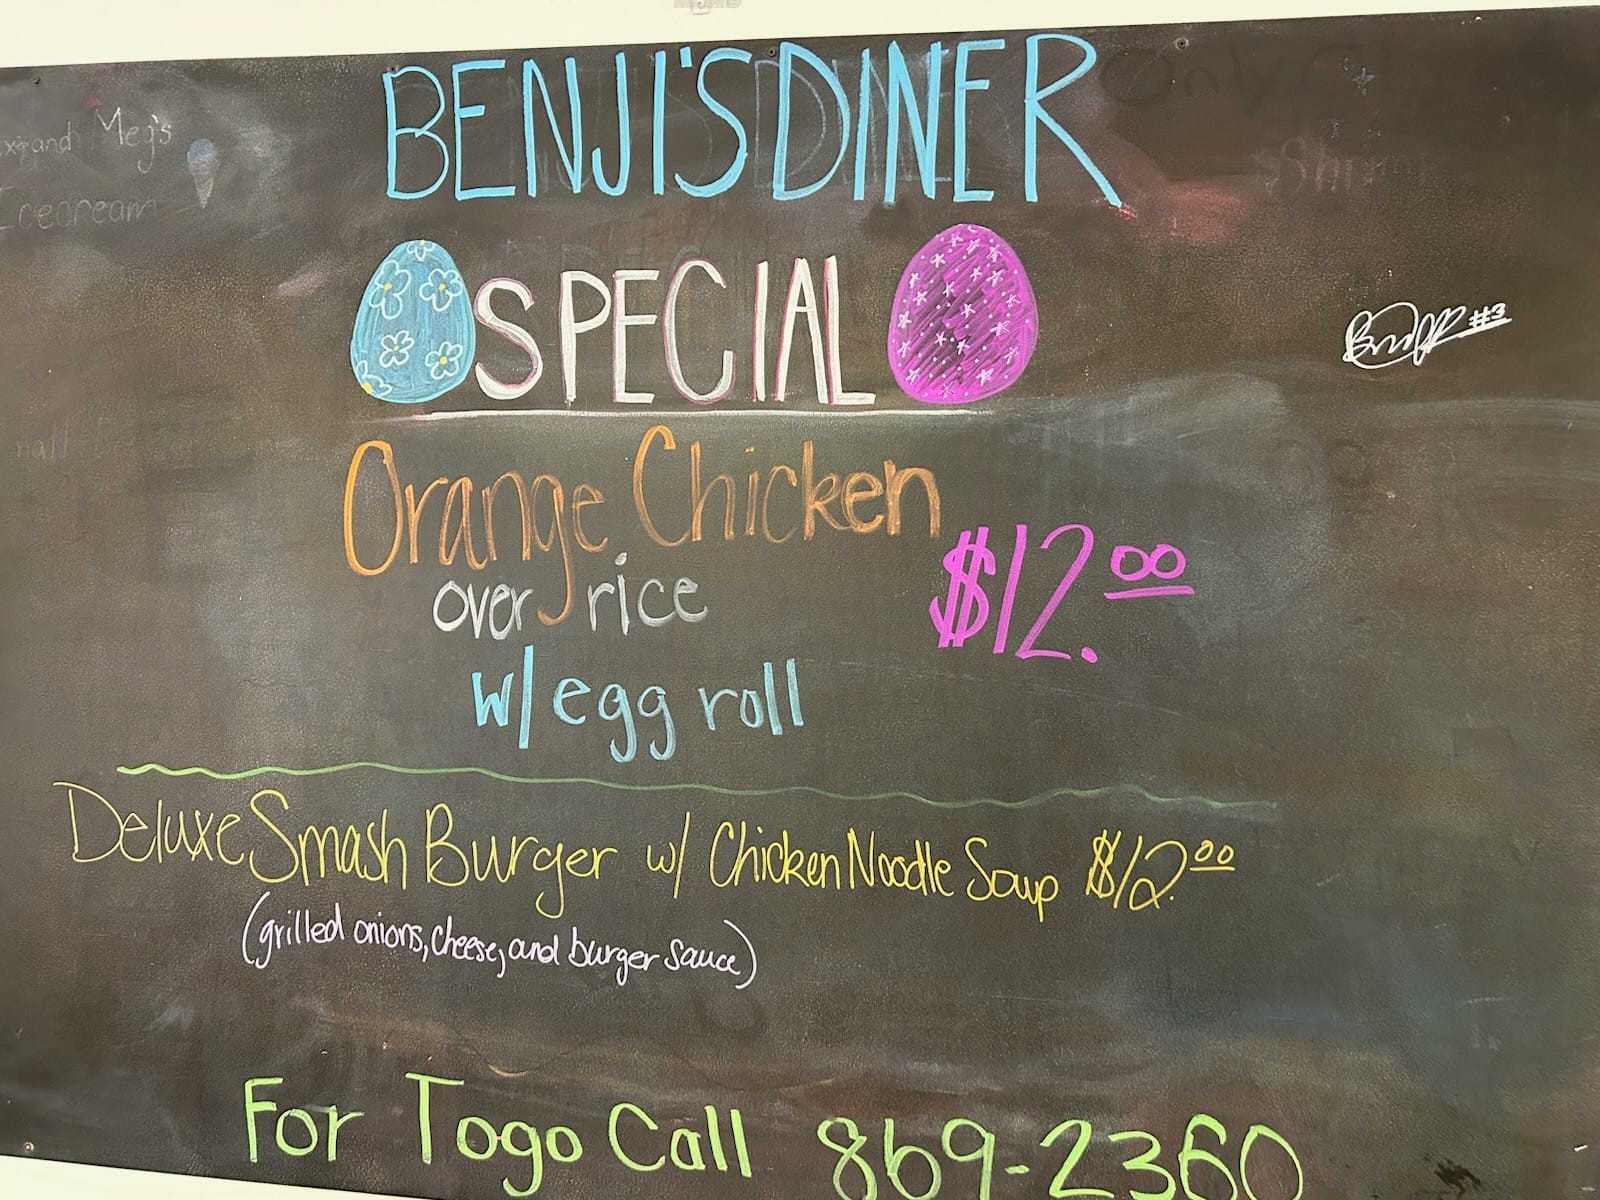 BENJI'S DINER
Meg's
SPECIAL
#3
Orange Chicken
$12.00
over rice
w/ egg roll
Deluxe Smash Burger w/ Chicken Noodle Soup $12.00
(grilled onions, cheese, and burger sauce)
For Togo Call 869-2360